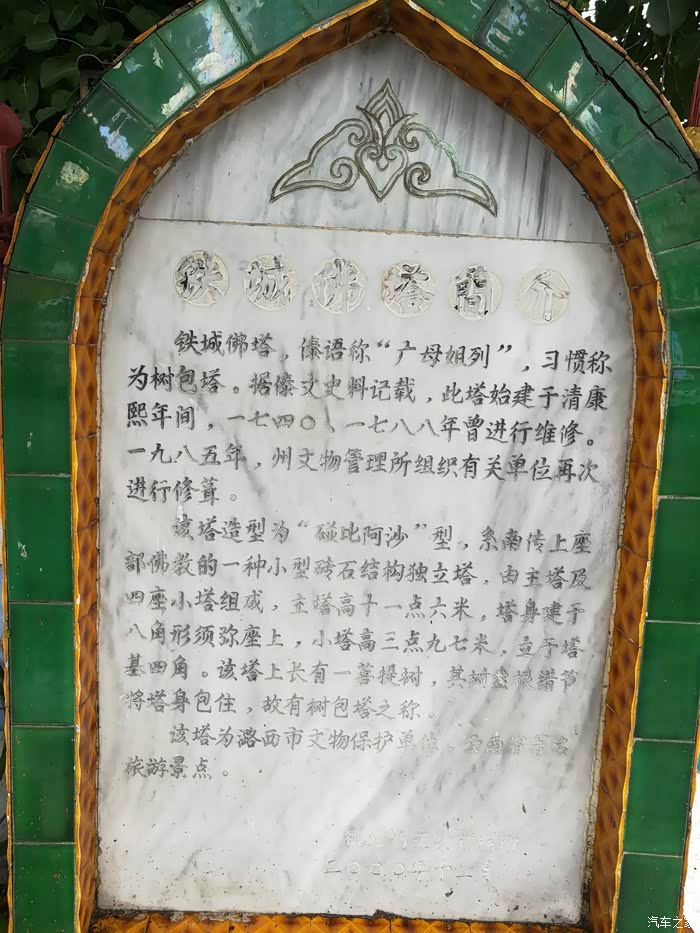 铁城佛塔简介
铁城佛塔，傣语称“广母姐列”，习惯称
为树包塔。据傣文史料记载，此塔始建于清康
熙年间，一七四〇、一七八八年曾进行维修。
一九八五年，州文物管理所组织有关单位再次
进行修葺。
该塔造型为“碰比阿沙”型，系南传上座
部佛教的一种小型砖石结构独立塔，由主塔及
四座小塔组成，主塔高十一点六米，塔身建于
八角形须弥座上，小塔高三点九七米，立于塔
基四角。该塔上长有一菩提树，其树盘根错节
将塔身包住，故有树包塔之称。
该塔为潞西市文物保护单位。云南省著名
旅游景点。
二〇〇〇年十二月
汽车之家